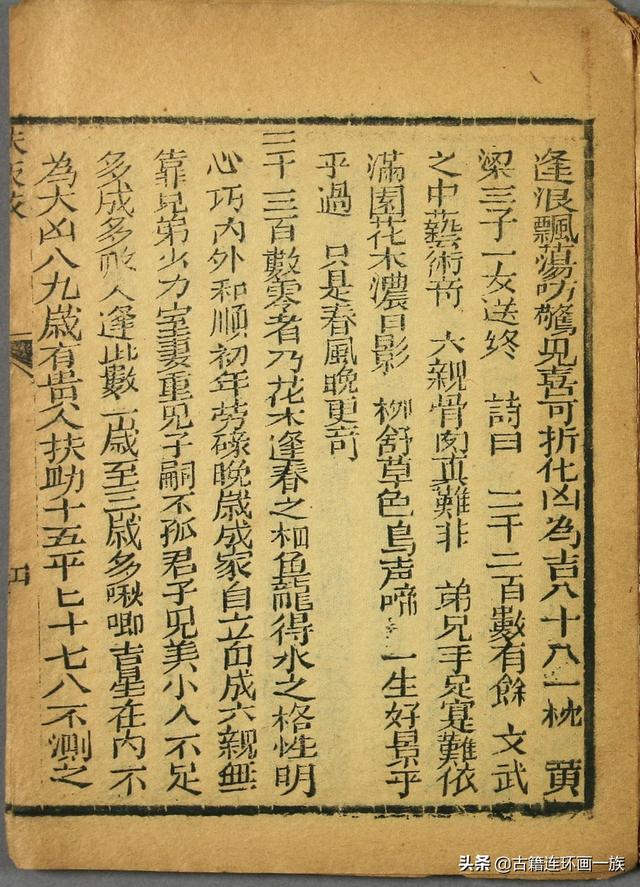 逢浪飄蕩叻驚見喜可折化凶為吉八十八一枕 黄
梁三子一女送終 詩曰 二千二百數有餘 文武
之中藝術奇 六親骨肉真難非 弟兄手足寔難依
滿園花木濃日影 柳舒草色鳥声啼 一生好景乎
乎過 只是春風晚更奇
三千三百數零者乃花木逢春之相魚龍得水之格性明
心巧内外和順初年勞碌晚歳成家自立而成六親無
靠兄弟少力室妻重見子嗣不孤君子見美小人不足
多成多敗人逢此數一歳至三歳多啾唧吉星在内不
為大凶八九歳有貴人扶助十五平七十七八不測之
頭条 @古籍连环画一族